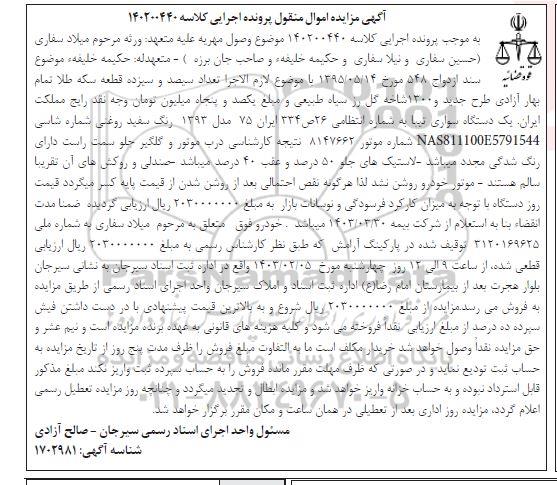 آگهی مزایده اموال منقول پرونده اجرایی کلاسه ۱۴۰۲۰۰۴۴۰
به موجب پرونده اجرایی کلاسه ۱۴۰۲۰۰۴۴۰ موضوع وصول مهریه علیه متعهد: ورثه مرحوم میلاد سفاری
(حسین سفاری و نیلا سفاری و حکیمه خلیفه» و صاحب جان برزه ) - متعهدله: حکیمه خلیفه» موضوع
سند ازدواج ۵۴۸ مورخ ۱۳۹۵/۰۵/۱۴ با موضوع لازم الاجرا تعداد سیصد و سیزده قطعه سکه طلا تمام
بهار آزادی طرح جدید و ۱۳۰۰شاخه گل رز سیاه طبیعی و مبلغ یکصد و پنجاه میلیون تومان وجه نقد رایج مملکت
ایران. یک دستگاه سواری تیبا به شماره انتظامی ۲۶ص۳۳۴ ایران ۷۵ مدل ۱۳۹۳ رنگ سفید روغنی شماره شاسی
NAS811100E5791544 شماره موتور ۸۱۴۷۶۶۲ نتیجه کارشناسی درب موتور و گلگیر جلو سمت راست دارای
رنگ شدگی مجدد میباشد -لاستیک های جلو ۵۰ درصد و عقب ۴۰ درصد میباشد -صندلی و روکش های آن تقریبا
سالم هستند - موتور خودرو روشن نشد لذا هرگونه نقص احتمالی بعد از روشن شدن از قیمت پایه کسر میگردد قیمت
روز دستگاه با توجه به میزان کارکرد فرسودگی و نوسانات بازار به مبلغ ۲۰۳۰۰۰۰۰۰۰ ریال ارزیابی گردیده ضمنا مدت
انقضاء بنا به استعلام از شرکت بیمه ۱۴۰۳/۰۳/۳۰ میباشد . خودرو فوق متعلق به مرحوم میلاد سفاری به شماره ملی
۳۱۲۰۱۶۹۶۲۵ توقیف شده در پارکینگ آرامش که طبق نظر کارشناس رسمی به مبلغ ۲۰۳۰۰۰۰۰۰۰ ریال ارزیابی
قطعی شده، از ساعت ۹ الی ۱۲ روز چهارشنبه مورخ ۱۴۰۳/۰۲/۰۵ واقع در اداره ثبت اسناد سیرجان به نشانی سیرجان
بلوار هجرت بعد از بیمارستان امام رضا(ع) اداره ثبت اسناد و املاک سیرجان واحد اجرای اسناد رسمی از طریق مزایده
به فروش می رسدمزایده از مبلغ ۲۰۳۰۰۰۰۰۰۰ ریال شروع و به بالاترین قیمت پیشنهادی با در دست داشتن فیش
سپرده ده درصد از مبلغ ارزیابی نقدا فروخته می شود و کلیه هزینه های قانونی به عهده برنده مزایده است و نیم عشر و
حق مزایده نقداً وصول خواهد شد خریدار مکلف است ما به التفاوت مبلغ فروش را ظرف مدت پنج روز از تاریخ مزایده به
حساب ثبت تودیع نماید و در صورتی که ظرف مهلت مقرر مانده فروش را به حساب سپرده ثبت واریز نکند مبلغ مذکور
قابل استرداد نبوده و به حساب خزانه واریز خواهد شد و مزایده ابطال و تجدید میگردد و چنانچه روز مزایده تعطیل رسمی
اعلام گردد، مزایده روز اداری بعد از تعطیلی در همان ساعت و مکان مقرر برگزار خواهد شد.
مسئول واحد اجرای اسناد رسمی سیرجان - صالح آزادی
شناسه آگهی: ۱۷۰۲۹۸۱